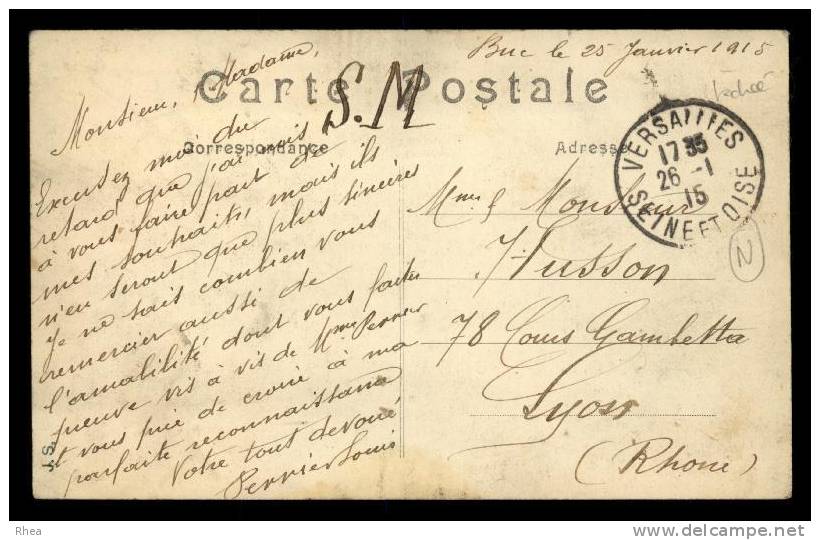 Buc le 25 Janvier 1915
Carte Postale
S.M
Correspondance
Adresse
Monsieur, Madame,
Excusez moi du
retard que j'ai mis
à vous faire part de
mes souhaits, mais ils
n'en seront que plus sincères
Je ne sais combien vous
remercier aussi de
l'amabilité dont vous faites
preuve vis à vis de Mme Perrier
et vous prie de croire à ma
parfaite reconnaissance
Votre tout dévoué
Perrier Louis
VERSAILLES
17 35
26 -1
15
SEINE ET OISE
2
Monsieur
Husson
78 Cours Gambetta
Lyon
(Rhone)
Rhea
www.delcampe.net